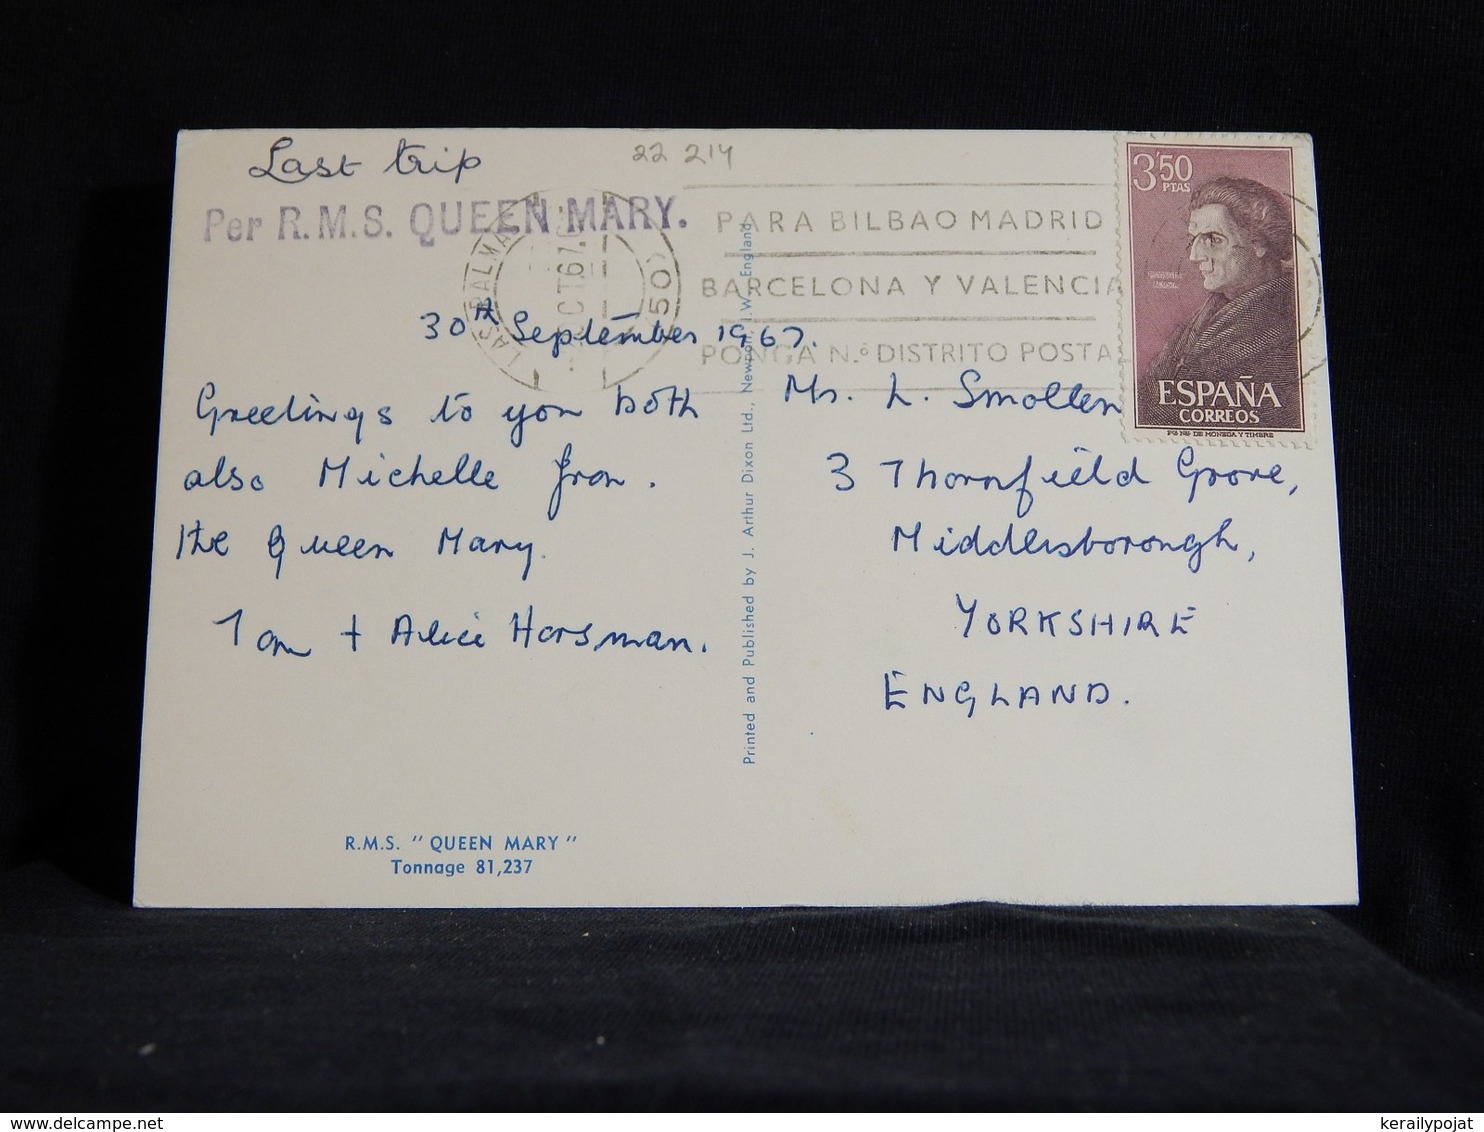 Last trip
22 214
Per R.M.S. QUEEN MARY.
LAS PALMAS
OCT.67
(50)
PARA BILBAO MADRID
BARCELONA Y VALENCIA
PONGA N.º DISTRITO POSTA
3'50
PTAS
ESPAÑA
CORREOS
30th September 1967.
Greetings to you both
also Michelle from.
the Queen Mary.
Tom + Alice Horsman.
Mr. L. Smollen
3 Thornfield Grove,
Middlesborough,
YORKSHIRE
ENGLAND.
Printed and Published by J. Arthur Dixon Ltd., Newport, I.W., England
R.M.S. "QUEEN MARY"
Tonnage 81,237
kerailypojat